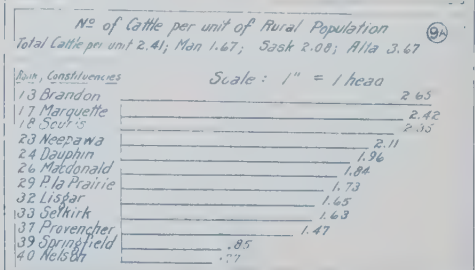 Nº of Cattle per unit of Rural Population
9A
Total Cattle per unit 2.41; Man 1.67; Sask 2.08; Alta 3.67
Dom, Constituencies Scale: 1" = 1 head
13 Brandon 2.65
17 Marquette 2.42
18 Souris 2.35
23 Neepawa 2.11
24 Dauphin 1.96
26 Macdonald 1.84
29 P. la Prairie 1.73
32 Lisgar 1.65
33 Selkirk 1.63
37 Provencher 1.47
39 Springfield .85
40 Nelson .77